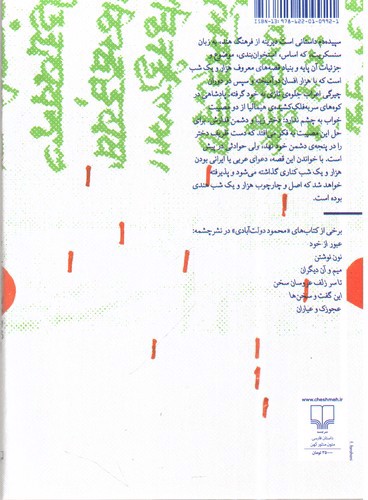 ISBN-13) 978-622-01-0992-1)
سپیده‌دم داستانی است دیرینه از فرهنگ هند، به زبان
سنسکریت که اساس، استخوان‌بندی، موضوع و
جزئیات آن پایه و بنیاد قصه‌های معروف هزار و یک شب
است که با هزار افسان در آمیخته و سپس در دوران
چیرگی اعراب جلوه‌ی تازی به خود گرفته. پادشاهی در
کوه‌های سربه‌فلک‌کشیده‌ی هیمالیا از دو مصیبت
خواب به چشم ندارد: دختر زیبا و دشمن قدارش. برای
حل این مصیبت به فکر می‌افتد که دست ظریف دختر
را در پنجه‌ی دشمن خود نهد، ولی حوادثی در پیش
است. با خواندن این قصه، دعوای عربی یا ایرانی بودن
هزار و یک شب کناری گذاشته می‌شود و پذیرفته
خواهد شد که اصل و چارچوب هزار و یک شب هندی
بوده است.
برخی از کتاب‌های «محمود دولت‌آبادی» در نشرچشمه:
عبور از خود
نون نوشتن
میم و آن دیگران
تا سر زلف عروسان سخن
این گفت و سخن‌ها
عبدوزک و عیاران
www.cheshmeh.ir
نشرچشمه
داستان فارسی
متون مشهور کهن
۲۵۰۰۰ تومان